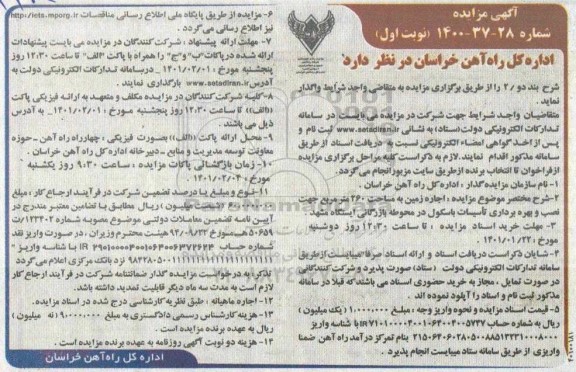 آگهی مزایده
شماره ۲۸-۳۷-۱۴۰۰ (نوبت اول)
اداره کل راه‌آهن خراسان در نظر دارد
شرح بند دو/۲ را از طریق برگزاری مزایده به متقاضی واجد شرایط واگذار
نماید.
متقاضیان واجد شرایط جهت شرکت در مزایده می بایست در سامانه
تدارکات الکترونیکی دولت(ستاد) به نشانی www.setadiran.ir ثبت نام و
پس از اخذ گواهی امضاء الکترونیکی نسبت به دریافت اسناد از طریق
سامانه مذکور اقدام نمایند. لازم به ذکر است کلیه مراحل برگزاری مزایده
از فراخوان تا انتخاب برنده از طریق سایت مزبور انجام می گردد.
۱- نام سازمان مزایده گذار : اداره کل راه آهن خراسان .
۲- شرح مختصر موضوع مزایده : اجاره زمین به مساحت ۲۶۰۰ متر مربع جهت
نصب و بهره برداری تأسیات باسکول در محوطه بازرگانی ایستگاه مشهد
۳- مهلت خرید اسناد مزایده : تا ساعت ۱۲:۳۰ روز دوشنبه
مورخ : ۱۴۰۱/۰۱/۲۲
۴- شایان ذکر است دریافت اسناد و ارائه اسناد صرفا میبایست از طریق
سامانه تدارکات الکترونیکی دولت (ستاد) صورت پذیرد و شرکت کنندگان
در صورت تمایل ، مجاز به خرید حضوری اسناد می باشند که قبلا در سامانه
مذکور ثبت نام و اسناد را آپلود نموده اند
۵- قیمت اسناد مزایده و نحوه واریز وجه : مبلغ ۱,۰۰۰,۰۰۰ (یک میلیون)
ریال به شماره حساب با شناسه واریز
بنام تمرکز درآمد راه آهن ضمنا
واریزی از طریق سامانه ستاد میبایست انجام پذیرد .
۶- مزایده از طریق پایگاه ملی اطلاع رسانی مناقصات http://iets.mporg.ir
نیز اطلاع رسانی می گردد .
۷- مهلت ارائه پیشنهاد : شرکت کنندگان در مزایده می بایست پیشنهادات
ارائه شده در پاکات «ب» و «ج» را همراه با پاکت «الف» تا ساعت ۱۲:۳۰ روز
پنجشنبه مورخ ۱۴۰۱/۰۲/۰۱ در سامانه تدارکات الکترونیکی دولت به
آدرس www.setadiran.ir بارگذاری نمایند.
۸- کلیه شرکت کنندگان در مزایده مکلف و متعهد به ارائه فیزیکی پاکت
«الف» تا ساعت ۱۲:۳۰ روز پنجشنبه مورخ ۱۴۰۱/۰۲/۰۱ به آدرس
ذیل می باشند.
۹- محل ارائه پاکت «الف» بصورت فیزیکی : چهارراه راه آهن - حوزه
معاونت توسعه مدیریت و منابع - دبیرخانه اداره کل راه آهن خراسان .
۱۰- زمان بازگشائی پاکات مزایده : ساعت ۹:۳۰ روز یکشنبه
مورخ ۱۴۰۱/۰۲/۰۴
۱۱- نوع و مبلغ یا درصد تضمین شرکت در فرآیند ارجاع کار : مبلغ
میلیون) ریال مطابق با تضامین معتبر مندرج در
آیین نامه تضمین معاملات دولتی موضوع مصوبه شماره ۱۲۳۴۰۲/ت
۵۰۶۵۹ ه مورخ ۹۴/۰۹/۲۲ هیئت محترم وزیران ، در صورت واریز نقد
شماره حساب با شناسه واریز
نزد بانک مرکزی اعلام می گردد
تذکر: به درخواست مزایده گذار ضمانتنامه شرکت در فرآیند ارجاع کار
لازم است به مدت سه ماه دیگر قابلیت تمدید داشته باشد.
۱۲- اجاره ماهیانه : طبق نظریه کارشناسی درج شده در اسناد مزایده.
۱۳- هزینه کارشناس رسمی دادگستری به مبلغ ۹,۰۰۰,۰۰۰ (نه میلیون)
ریال به عهده برنده مزایده است .
۱۴- هزینه دو نوبت آگهی روزنامه به عهده برنده مزایده است .
اداره کل راه آهن خراسان